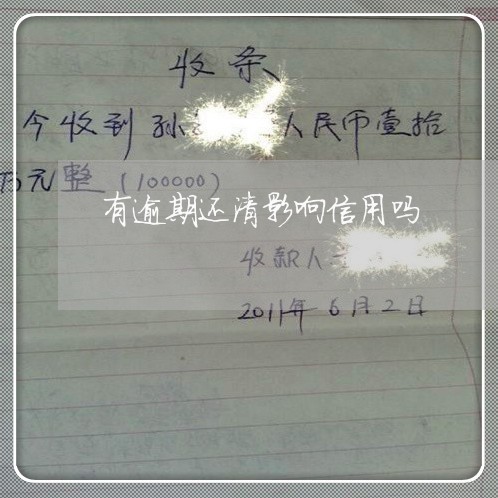 收条
今收到孙 人民币壹拾
万元整(100000)
有逾期还清影响信用吗
收款人
2011年6月2日